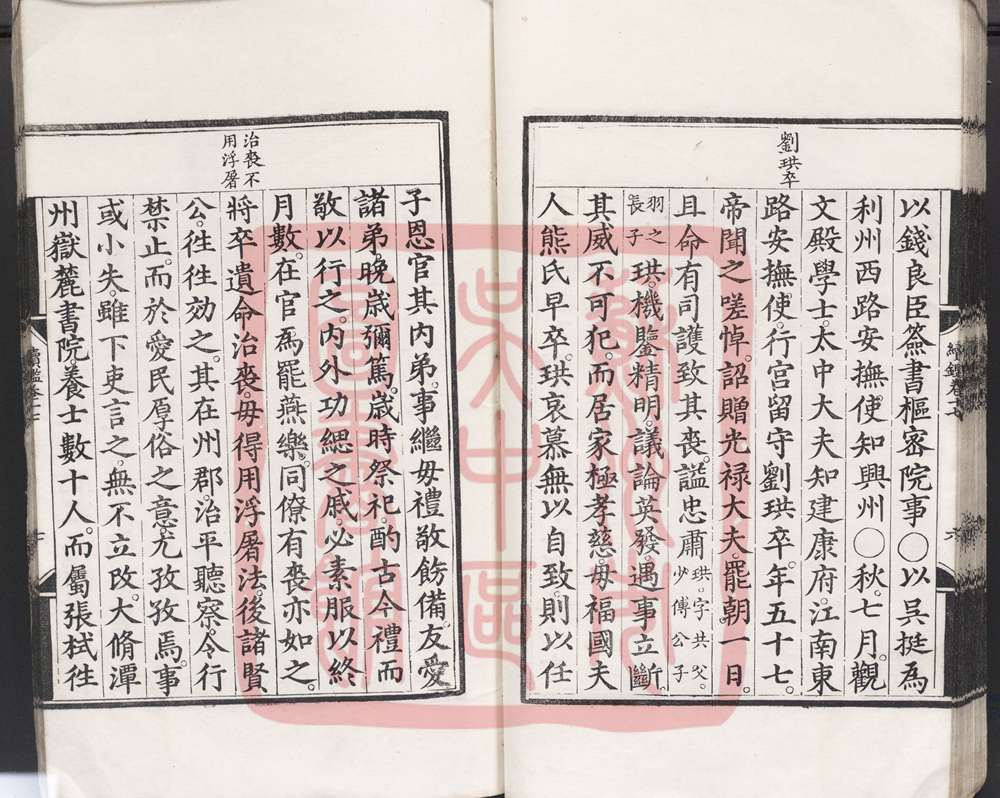 劉珙卒
以錢良臣簽書樞密院事〇以吳挺為
利州西路安撫使知興州〇秋七月觀
文殿學士太中大夫知建康府江南東
路安撫使行宮留守劉珙卒年五十七
帝聞之嗟悼詔贈光禄大夫罷朝一日
且命有司護致其喪謚忠肅珙字共父少傅公子
羽之長子珙機鑒精明議論英發遇事立斷
其威不可犯而居家極孝慈毋福國夫
人熊氏早卒珙哀慕無以自致則以任
治喪不用浮屠
子恩官其内弟事繼毋禮敬飭備友愛
諸弟晚歲彌篤歲時祭祀酌古今禮而
敬以行之内外功緦之戚必素服以終
月數在官為罷燕樂同僚有喪亦如之
將卒遺命治喪毋得用浮屠法後諸賢
公往往效之其在州郡治平聽察令行
禁止而於愛民厚俗之意尤孜孜焉事
或小失雖下吏言之無不立改大脩潭
州嶽麓書院養士數十人而屬張栻往